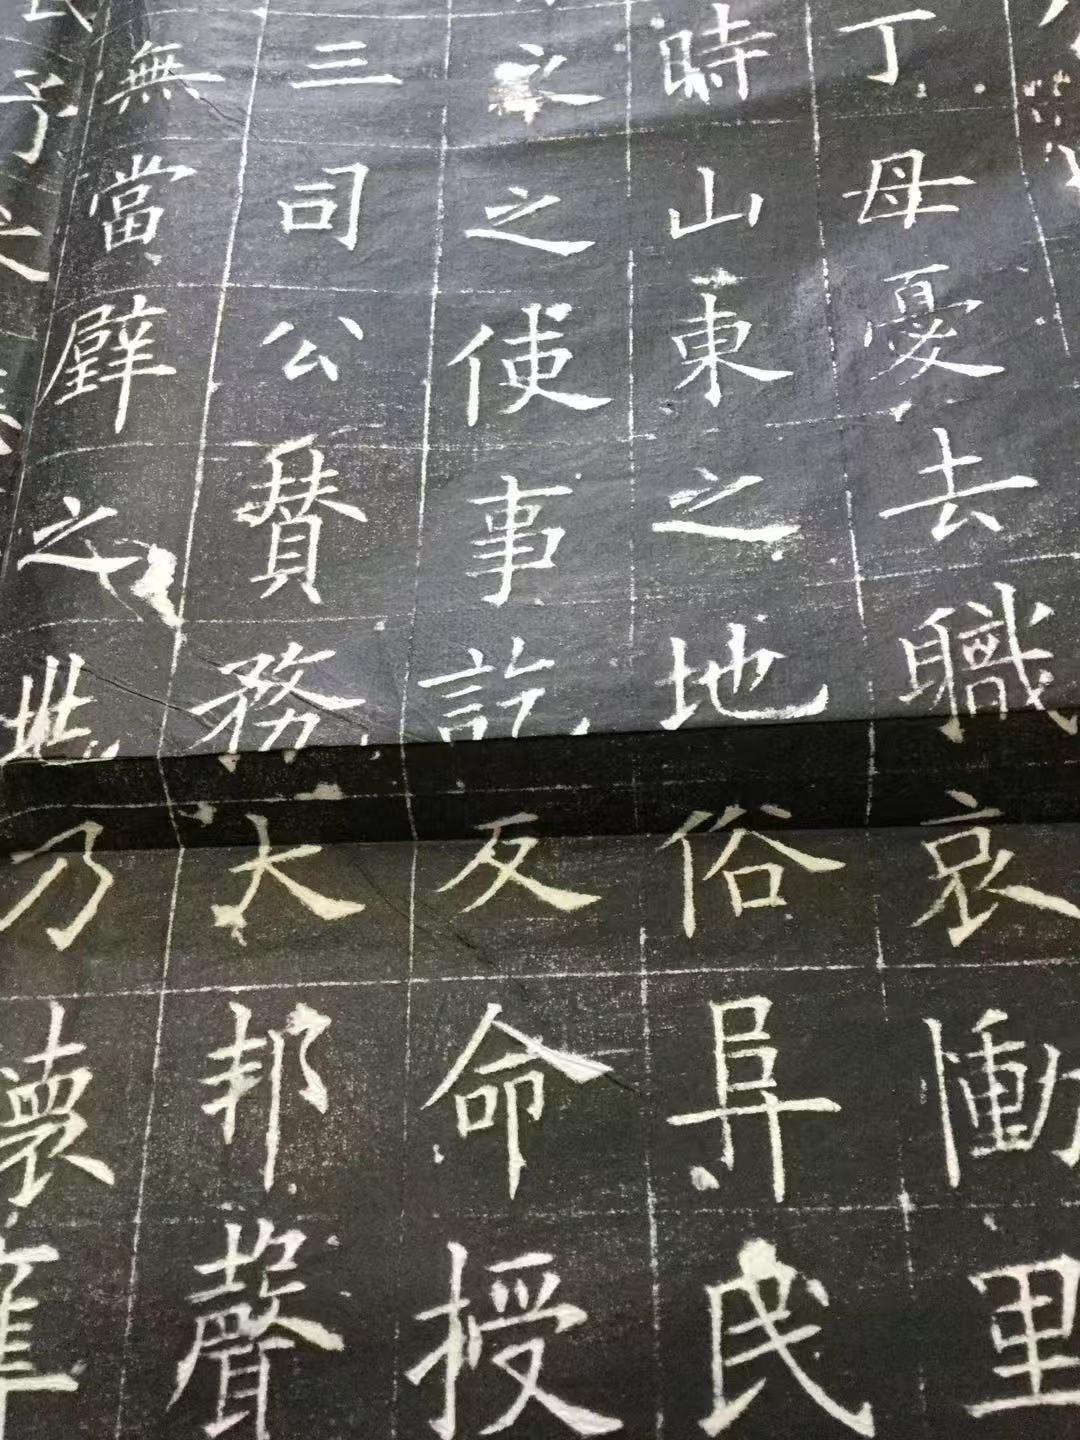 丁母憂去職哀慟里
時山東之地俗阜民
之使事訖反命授
三司公賛務大邦聲
無當璧之兆乃懷
予